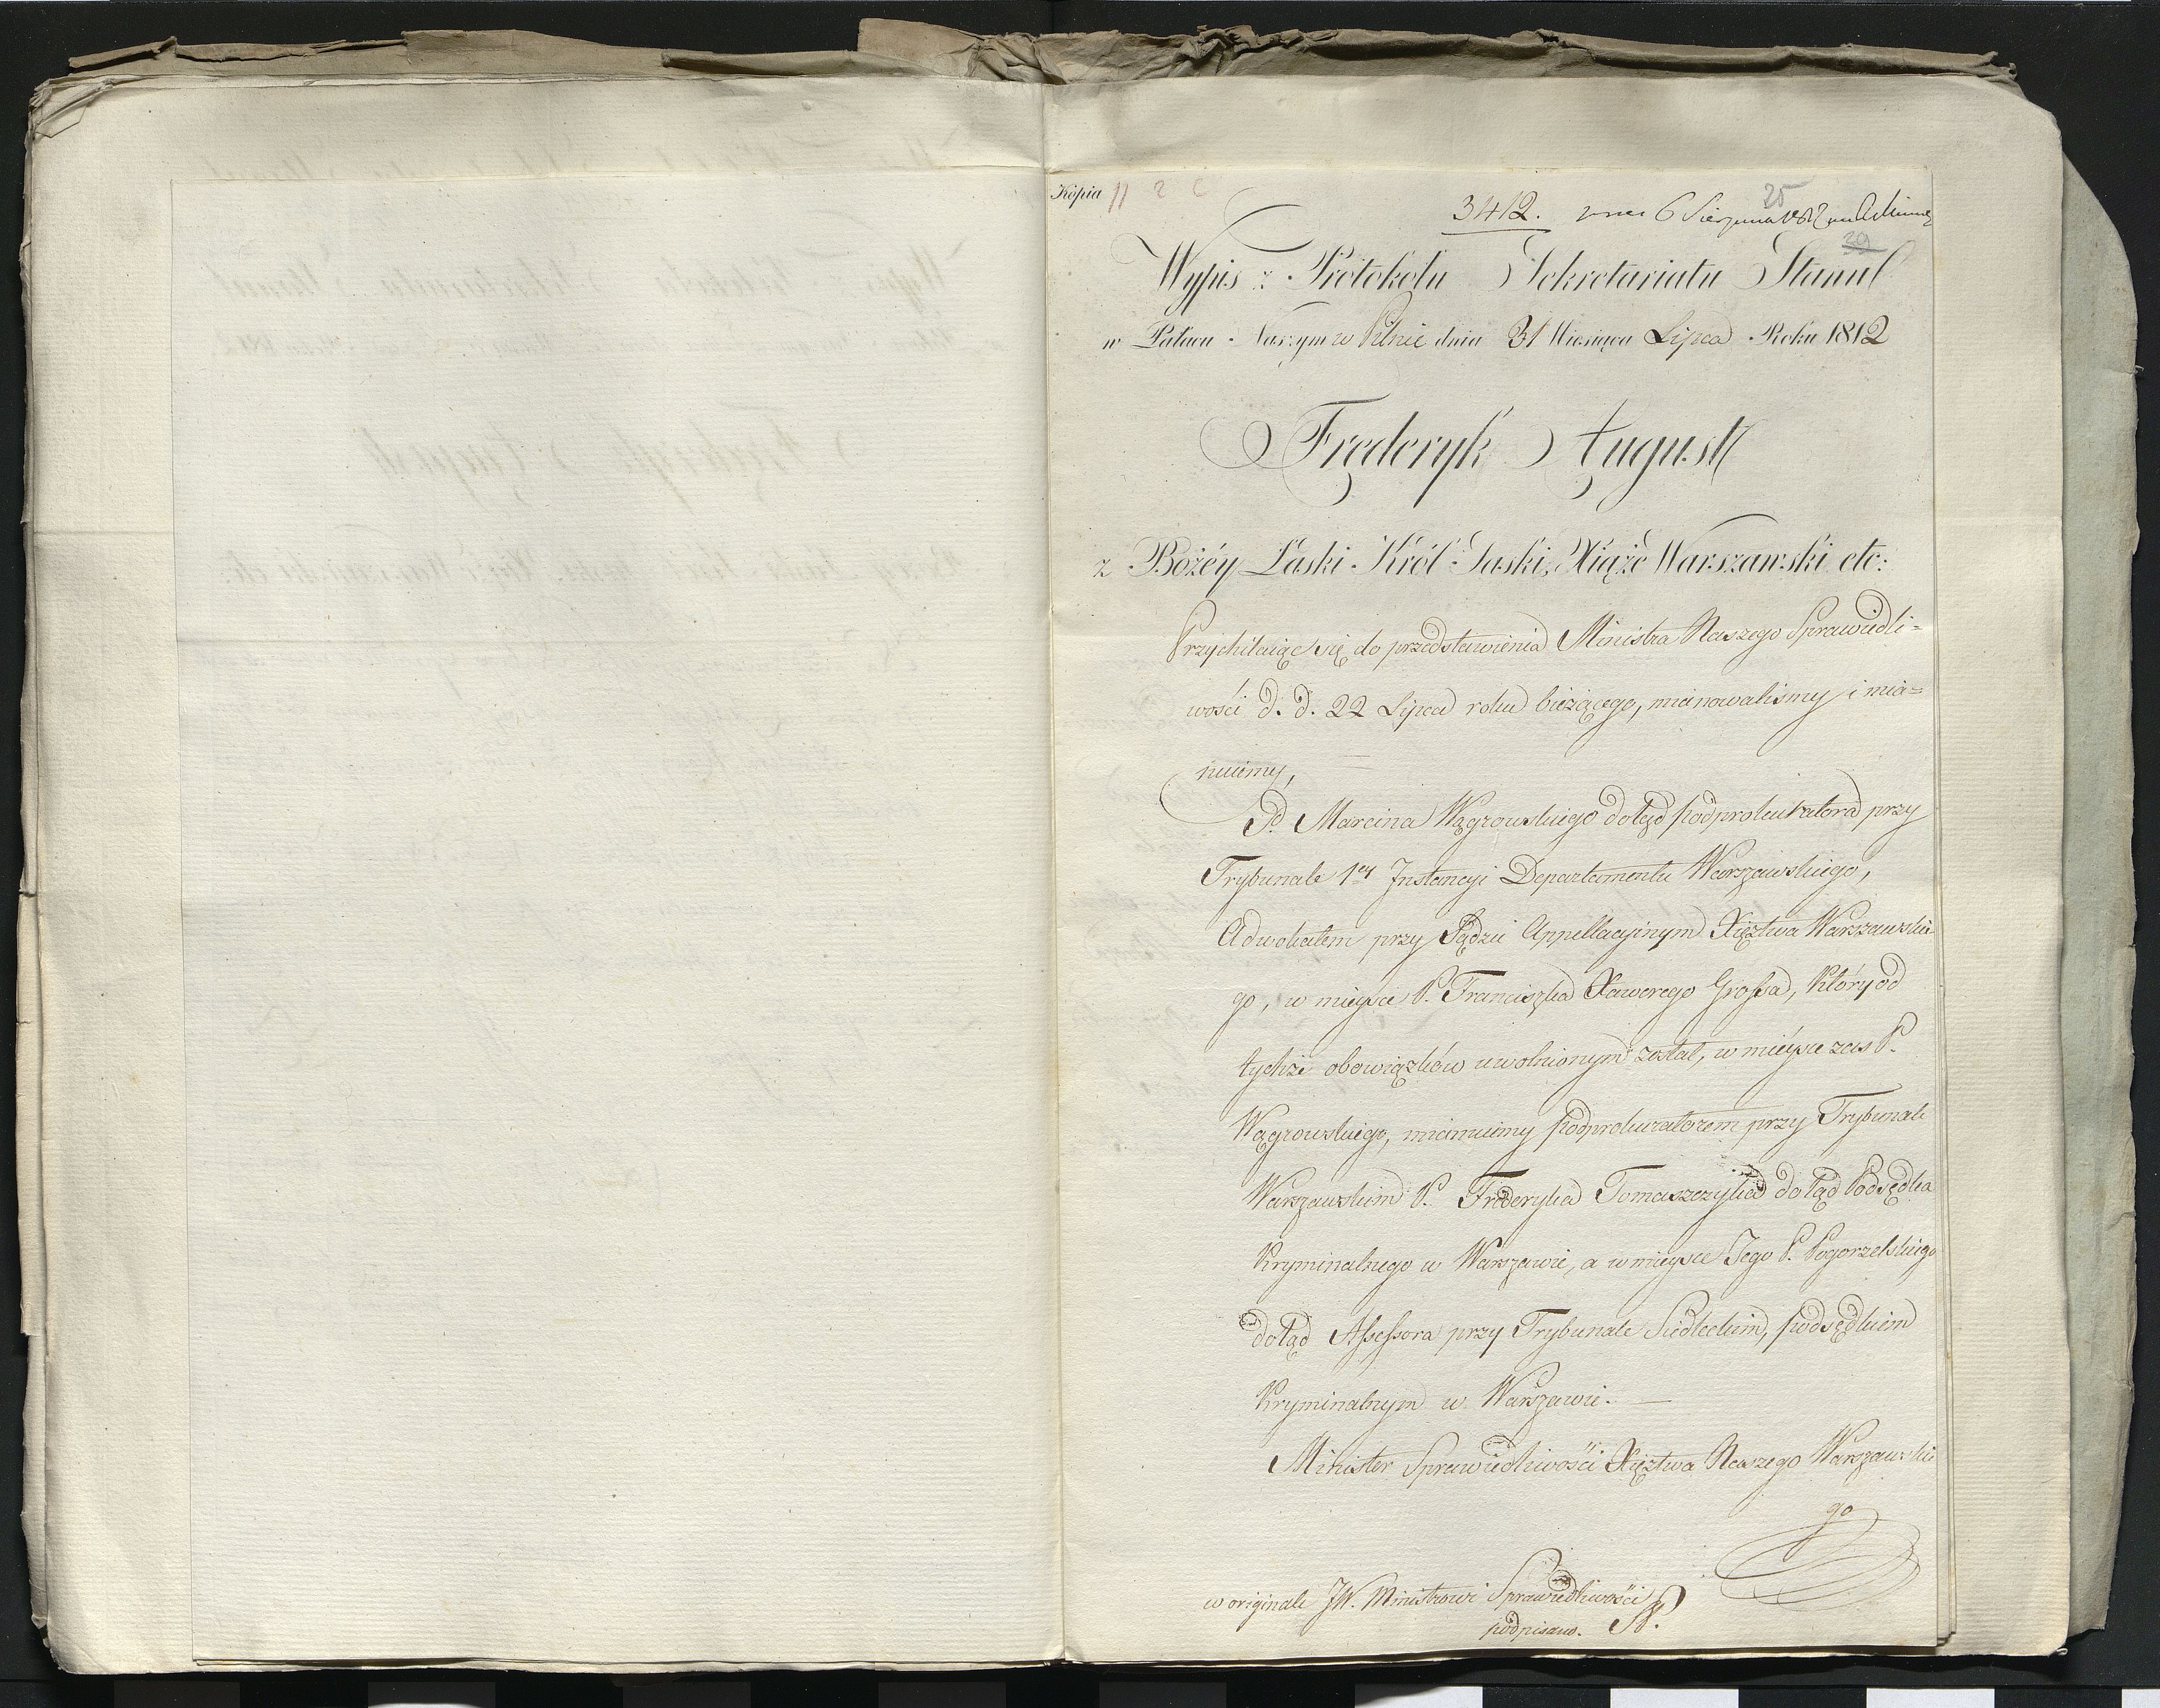 Kópia
25
3412. 6 Sierpnia 1812
29
Wypis z Protokołu Sekretariatu Stanu
w Pałacu Naszym w Pilnic dnia 31 Miesiąca Lipca Roku 1812
Fręderyk August
z Bożéy Łaski Król Saski, Xiąże Warszawski etc:
Przychilaiąc się do przedstawienia Ministra Naszego Sprawiedli=
wości d. d. 22 Lipca roku bieżącego, mianowaliśmy i mia=
nuiemy,
P. Marcina Wągrowskiego dotąd podprokuratora przy
Trybunale 1ey Instancyi Departamentu Warszawskiego,
Adwokatem przy Sądzie Appellacyinym Xięztwa Warszawskie=
go, w mieysce P. Franciszka Xawerego Grossa, który od
tychże obowiązków uwolnionym został, w mieysce zaś P.
Wągrowskiego, mianuiemy podprokuratorem przy Trybunale
Warszawskim P. Frederyka Tomaszczyka dotąd Podsędka
Kryminalnego w Warszawie, a w mieysce Jego P. Pogorzelskiego
dotąd Assessora przy Trybunale Siedleckim, podsędkiem
Kryminalnym w Warszawie.
Minister Sprawiedliwości Xięztwa Naszego Warszawskie
go
w originale JW. Ministrowi Sprawiedliwości
podpisano.